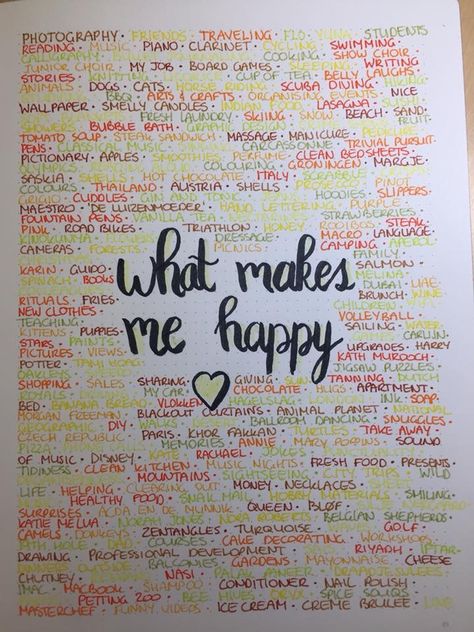 PHOTOGRAPHY · FRIENDS · TRAVELING · FLO · YUNA · STUDENTS
READING · MUSIC · PIANO · CLARINET · CYCLING · SWIMMING
CALLIGRAPHY · COOKING · SHOW CHOIR ·
JUNIOR CHOIR · MY JOB · BOARD GAMES · SLEEPING · WRITING
STORIES · KNITTING · CUP OF TEA · BELLY LAUGHS ·
ANIMALS · DOGS · CATS · HORSE RIDING · SCUBA DIVING · HIKING ·
BBQ · ARTS & CRAFTS · ORGANISING EVENTS · NICE
WALLPAPER · SMELLY CANDLES · INDIAN FOOD · LASAGNA · SUSHI ·
FRESH LAUNDRY · SKIING · SNOW · BEACH · SAND ·
FLOWERS · BUBBLE BATH · GRAPHIC DESIGN · FRUIT ·
TOMATO SOUP · STEAK SANDWICH · MASSAGE · MANICURE · PEDICURE ·
PENS · CLASSICAL MUSIC · CARCASSONNE · TRIVIAL PURSUIT ·
PICTIONARY · APPLES · SMOOTHIES · PERFUME · CLEAN BEDSHEETS ·
COLOURING · GRONINGEN · MARGJE ·
SASKIA · SHELLS · HOT CHOCOLATE · ITALY ·
COLOURS · THAILAND · AUSTRIA · SHELLS · PROSECCO · PINOT
GRIGIO · CUDDLES · GIN AND TONIC · HOODIES · SLIPPERS ·
MAESTRO · 'DE LUIZENMOEDER' · HAND LETTERING · PURPLE ·
FOUNTAIN PENS · VANILLA TEA · STRAWBERRIES ·
PINK · ROAD BIKES · TRIATHLON · HONEY · ROOIBOS · STEAK
KINOKUNIYA · FLOWERS · DRESSAGE · MACRO · LANGUAGE ·
CAMERAS · FORESTS · PICNICS · CAMPING · APEROL
FAMILY ·
KARIN · GUIDO · SALMON ·
SPINACH · BOOKS · MELINA ·
DUBAI · UAE ·
RITUALS · FRIES · BRUNCH · WINE ·
NEW CLOTHES · CHILDREN ·
TEACHING · VOLLEYBALL ·
KITTENS · PUPPIES · SAILING · WATER ·
STARS · PAINTS · GAMES · CAROLIN ·
PICTURES · VIEWS · UPGRADES · HARRY
POTTER · TAMI HOAG · KATH MUROOCH ·
OAKLEYS · JIGSAW PUZZLES ·
SHOPPING · SALES · SHARING · GIVING · SUN · TANNING · DUTCH
ROYALS · MY CAR · CHOCOLATE · HUGS · APARTMENT ·
BED · BANANA BREAD · VLOKKEN · HAGELSLAG · LONDON · INK · SOAP ·
MORGAN FREEMAN · BLACKOUT CURTAINS · ANIMAL PLANET · NATIONAL
GEOGRAPHIC · DIY · WALKS · BALLROOM DANCING · SNUGGLES ·
CZECH REPUBLIC · PARIS · KHOR FAKKAN · TURTLES · TAKE AWAY ·
PIZZA · MEMORIES · ANNIE · MARY POPPINS · SOUND
OF MUSIC · DISNEY · KATE · RACHAEL · JOKES ·
TIDINESS · CLEAN KITCHEN · MUSIC NIGHTS · FRESH FOOD · PRESENTS ·
MOUNTAINS · SIGHTSEEING · CITY TRIPS · WILD
LIFE · HELPING · CLEARING OUT · MONEY · NECKLACES ·
HEALTHY FOOD · SNAIL MAIL · HOBBY MATERIALS · SMILING ·
SURPRISES · ACDA EN DE MUNNIK · QUEEN · BLØF ·
KATIE MELUA · NORAH JONES · NORA ROBERTS · BELGIAN SHEPHERDS ·
CAMELS · DONKEYS · ZENTANGLES · TURQUOISE · GOLF ·
19TH HOLE · DAD · COURSES · CAKE DECORATING · WORKSHOPS ·
DRAWING · PROFESSIONAL DEVELOPMENT · RIYADH · IFTAR ·
DINNERS OUTSIDE · BALCONIES · GARDENS · MAYONNAISE · CHEESE
CHUTNEY · NASI · PALAK PANEER ·
IMAC · MACBOOK · SHAMPOO · CONDITIONER · NAIL POLISH ·
PETTING ZOO · BEE HIVES · ORYX · SPICE SOUQS ·
MASTERCHEF · FUNNY VIDEOS · ICE CREAM · CREME BRULEE ·
what makes
me happy